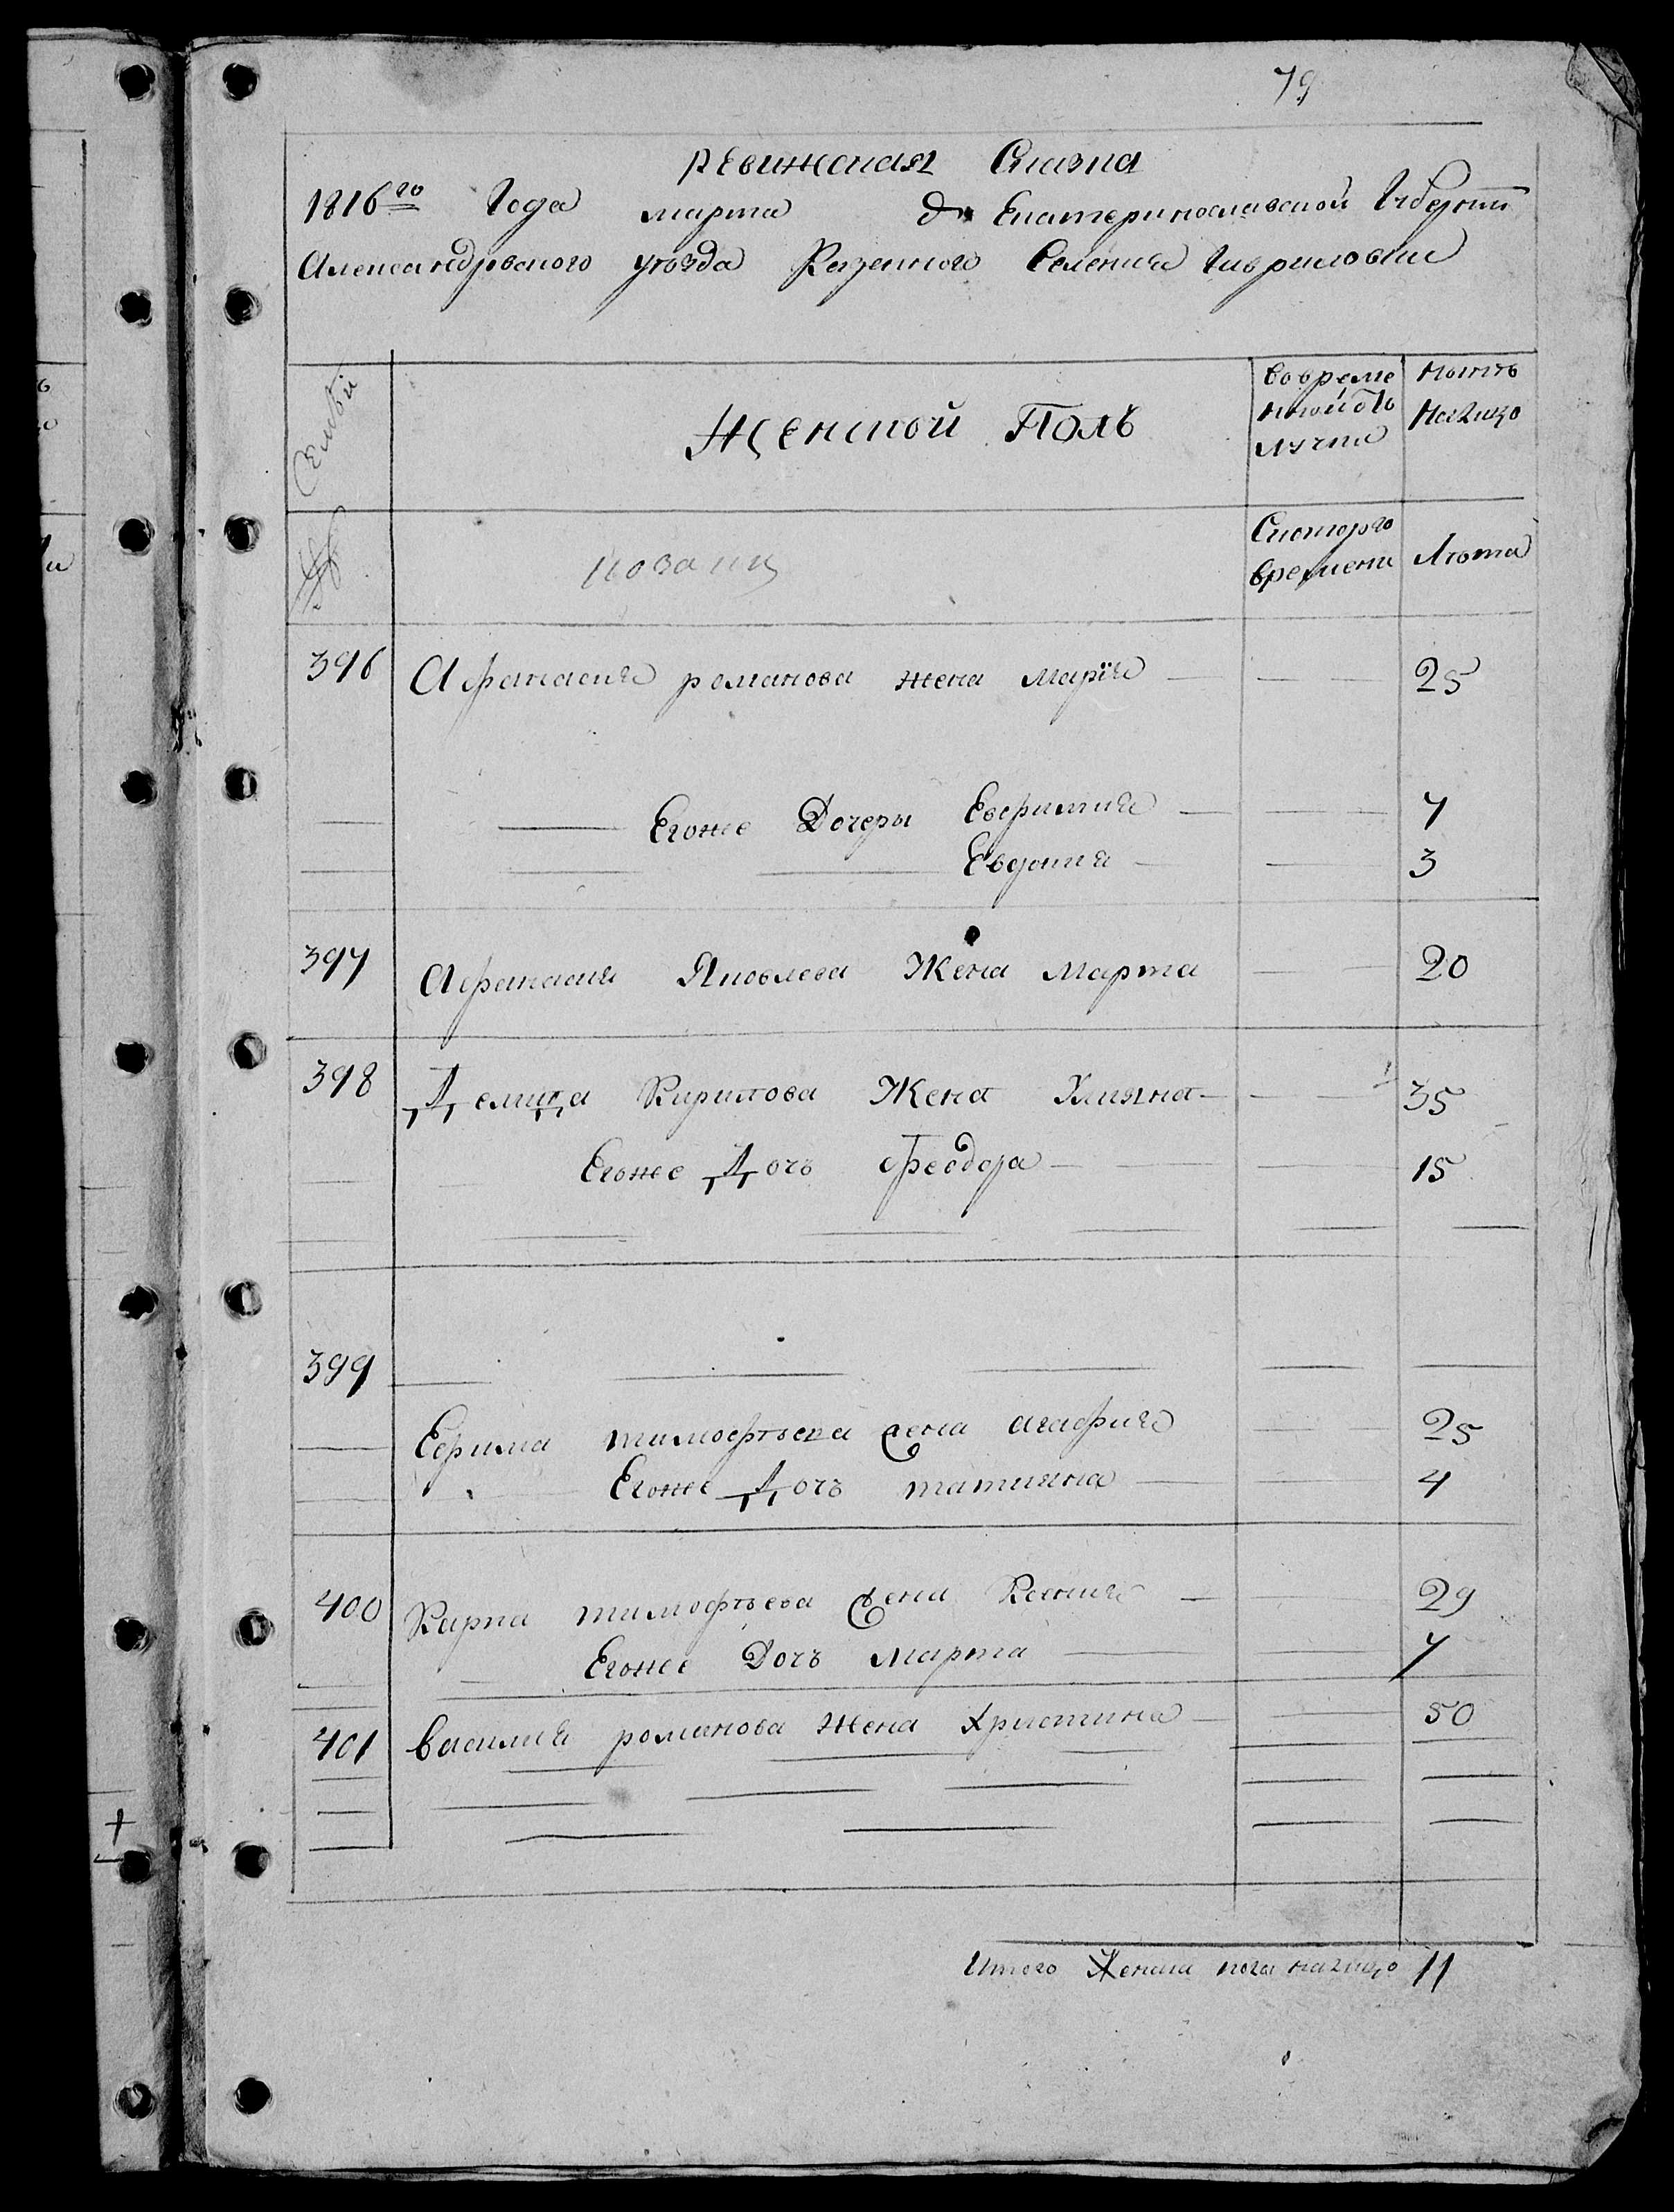 79
ревижская Сказка
1816го Года марта дня Екатеринославской Губернии
Александровского уѣзда Казенного Селения Гавриловки
Семьи Женской Полъ Вовреме нной отлучке Ныне На лицо
№ козаки Скоторого времени Лѣта
396 Афанасия романова жена Марїя 25
Егоже Дочеры Евфимия 7
Евдокия 3
397 Афанасия Яковлева Жена Марта 20
398 Демида Кирилова Жена Улияна 35
Егоже Дочь Феодора 15
399
Ефима тимофѣева жена агафия 25
Егоже Дочь татияна 4
400 Карпа тимофѣева жена Ксения 29
Егоже Дочь Марта 7
401 Василия романова жена Христина 50
Итого Женска пола налицо 11